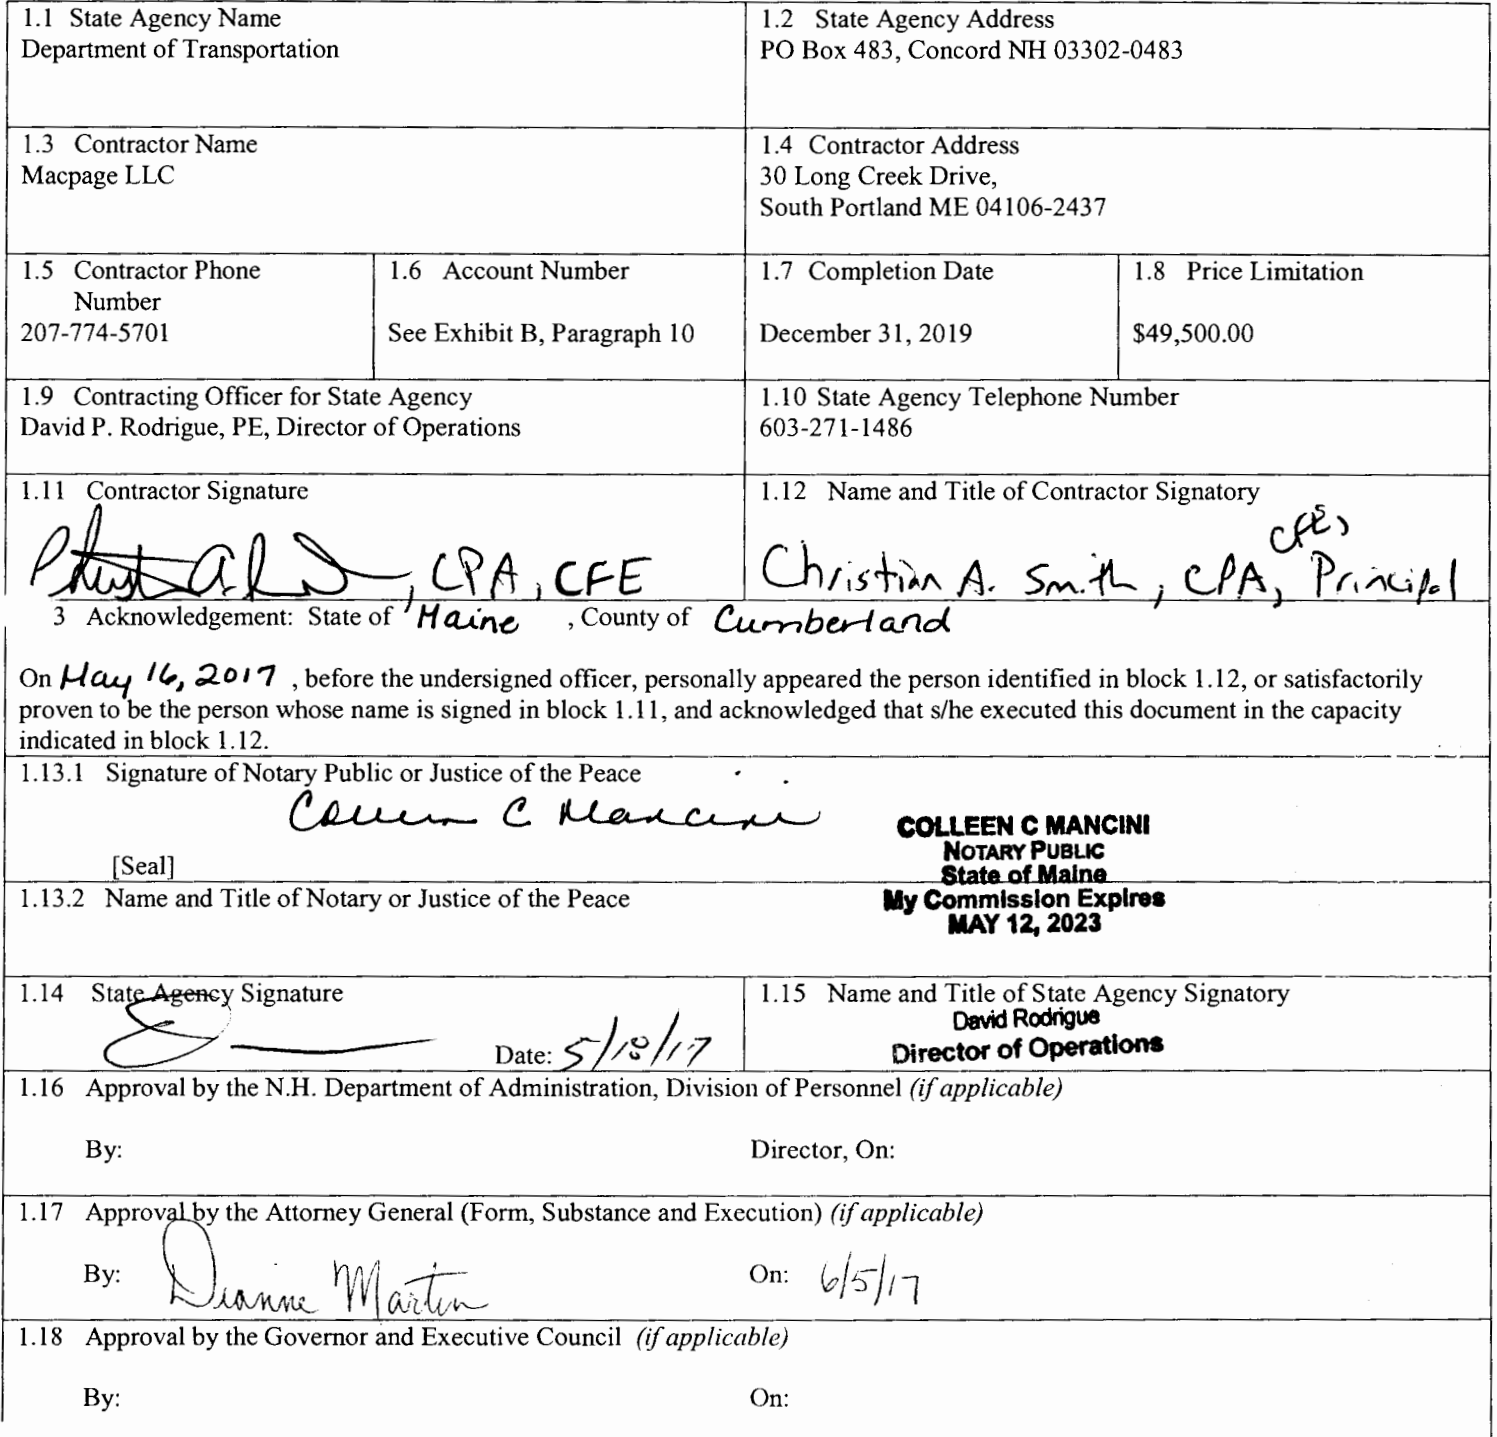 1.1 State Agency Name
Department of Transportation
1.2 State Agency Address
PO Box 483, Concord NH 03302-0483
1.3 Contractor Name
Macpage LLC
1.4 Contractor Address
30 Long Creek Drive,
South Portland ME 04106-2437
1.5 Contractor Phone
Number
207-774-5701
1.6 Account Number
See Exhibit B, Paragraph 10
1.7 Completion Date
December 31, 2019
1.8 Price Limitation
$49,500.00
1.9 Contracting Officer for State Agency
David P. Rodrigue, PE, Director of Operations
1.10 State Agency Telephone Number
603-271-1486
1.11 Contractor Signature
, CPA, CFE
1.12 Name and Title of Contractor Signatory
CFE,
Christian A. Smith, CPA, Principal
3 Acknowledgement: State of Maine, County of Cumberland
On May 16, 2017, before the undersigned officer, personally appeared the person identified in block 1.12, or satisfactorily
proven to be the person whose name is signed in block 1.11, and acknowledged that s/he executed this document in the capacity
indicated in block 1.12.
1.13.1 Signature of Notary Public or Justice of the Peace
Colleen C Mancini
[Seal]
COLLEEN C MANCINI
NOTARY PUBLIC
State of Maine
My Commission Expires
MAY 12, 2023
1.13.2 Name and Title of Notary or Justice of the Peace
1.14 State Agency Signature
Date: 5/18/17
1.15 Name and Title of State Agency Signatory
David Rodrigue
Director of Operations
1.16 Approval by the N.H. Department of Administration, Division of Personnel (if applicable)
By:
Director, On:
1.17 Approval by the Attorney General (Form, Substance and Execution) (if applicable)
By: Dianne Martin
On: 6/5/17
1.18 Approval by the Governor and Executive Council (if applicable)
By:
On: